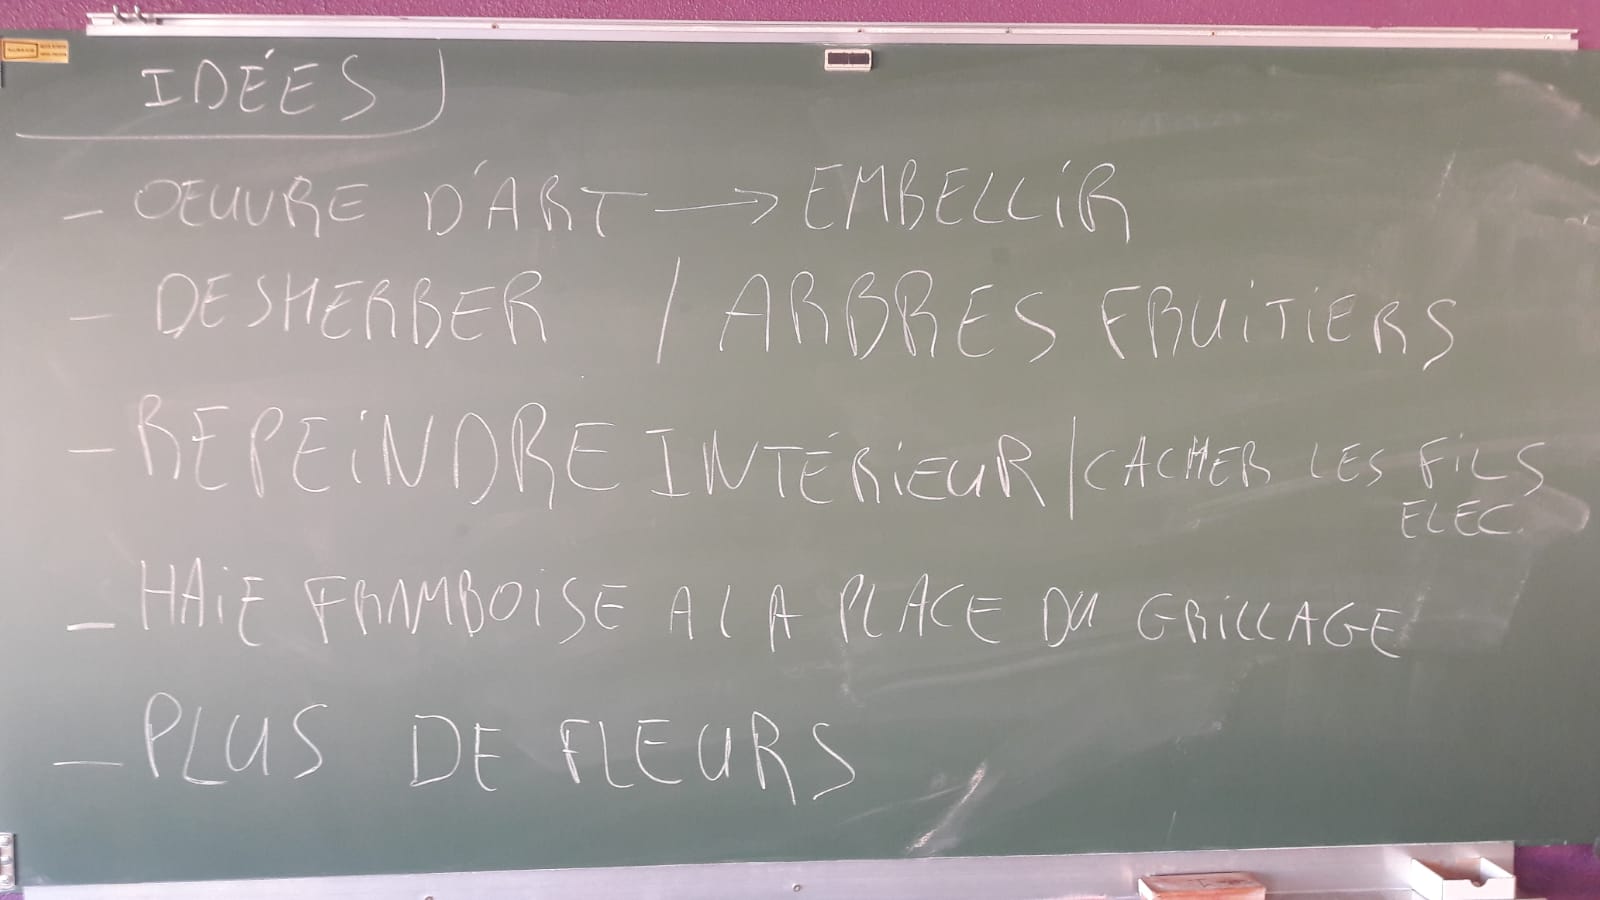 IDÉES
- OEUVRE D'ART → EMBELLIR
- DESHERBER / ARBRES FRUiTiERS
- REPEiNDRE INTÉRiEUR / CACHER LES FiLS
ELEC.
- HAiE FRAMBOiSE A LA PLACE DU GRiLLAGE
- PLUS DE FLEURS